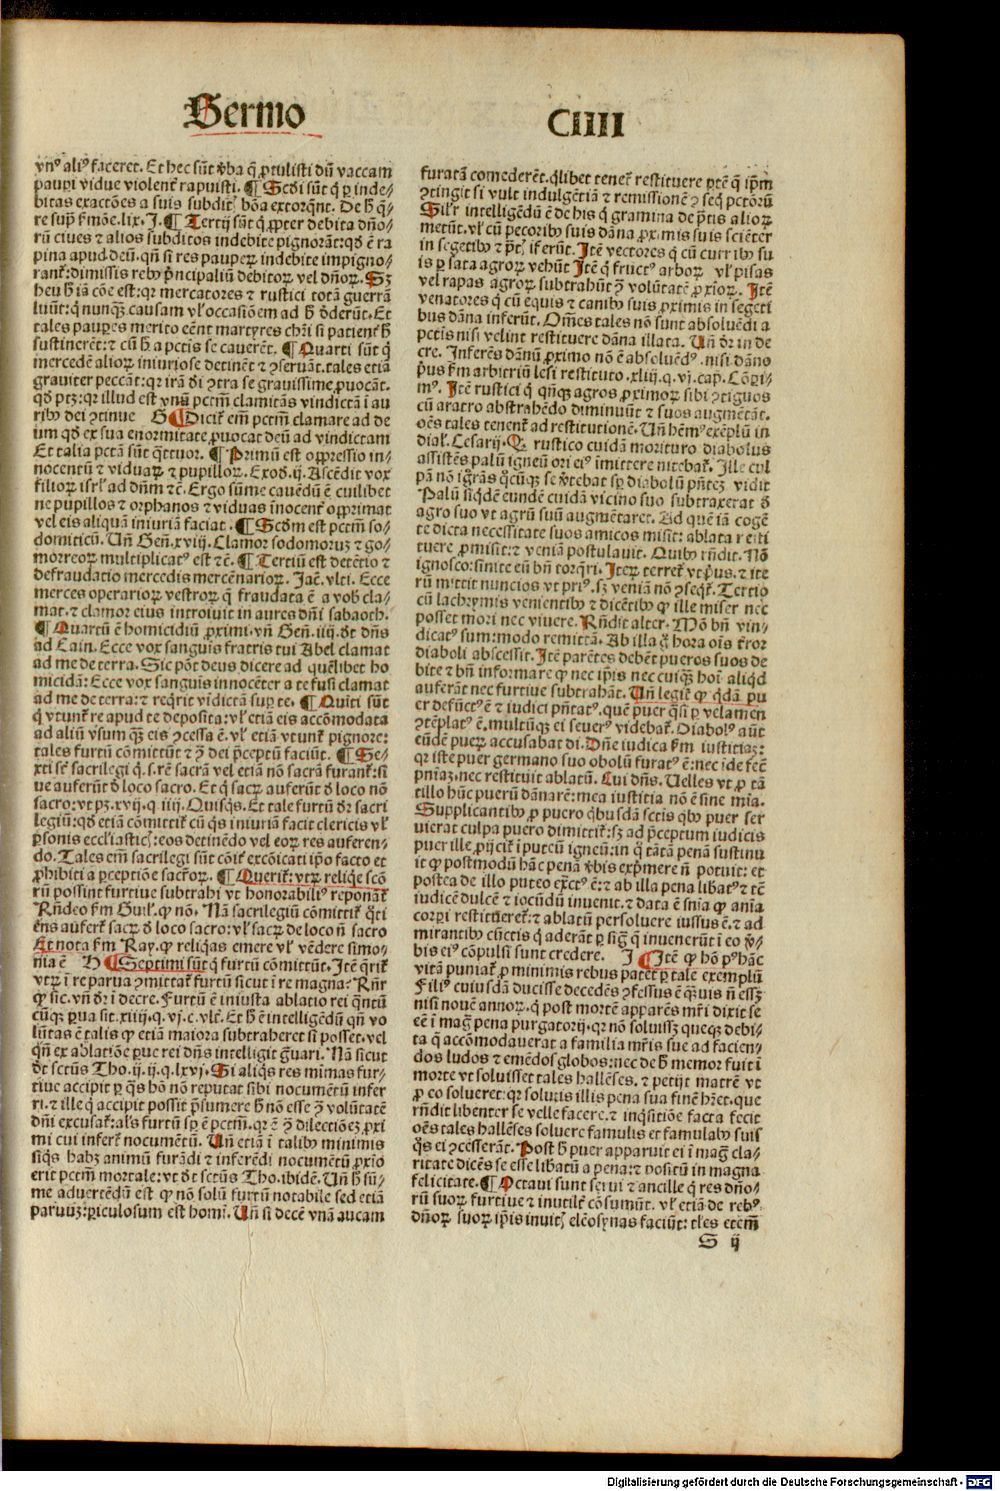 Sermo
CIIII
vnꝰ aliꝰ faceret. Et hec sūt v̓ba q̄ ꝓtulisti dū vaccam
pauꝑi vidue violent̓ rapuisti. ¶ Scd̓i sūt q̇ ꝑ inde⸗
bitas exactōes a suis subditꝭ bōa extorq̄nt. De h̓ q̄⸗
re sup̄ ẜmōe.lix.J. ¶ Tertij sūt q̇ ꝓpter debita dn̄o⸗
rū ciues ⁊ alios subditos indebite pignorāt:qd̓ ē ra
pina apud deū.qn̄ si res pauperꝝ indebite impigno⸗
rant̓:dimissis rebꝰ p̓ncipaliū debitorꝝ vel dn̄oꝝ. Sꝫ
heu h̓ iā cōe est:qꝛ mercatores ⁊ rustici totā guerrā
luūt:q̇ nunqꝫ causam vl̓ occasiōem ad h̓ d̓derūt. Et
tales pauꝑes merito eēnt martyres chr̄i si patient̓ h̓
sustinerēt:⁊ cū h̓ a pctīs se cauerēt. ¶ Quarti sūt q̇
mercedē alioꝝ iniuriose detinēt ⁊ ꝯseruāt.tales etiā
grauiter peccāt:qꝛ irā d̓i ꝯtra se grauissime ꝓuocāt.
qd̓ ptꝫ:qꝛ illud est vnū pctm̄ clamitās vindictā ī au
ribꝰ dei ꝯtinue G ¶ Dicit̓ em̄ pctm̄ clamare ad de
um qd̓ ex sua enormitate ꝓuocat deū ad vindictam
Et talia pctā sūt q̄ttuor. ¶ Primū est oppressio in⸗
nocentū ⁊ viduaꝝ ⁊ pupilloꝝ. Exod̓.ij. Ascēdit vox
filioꝝ isrl̓ ad dn̄m ⁊c̄. Ergo sūme cauēdū ē cuilibet
ne pupillos ⁊ orphanos ⁊ viduas inocent̓ opprimat
vel eis aliquā iniuriā faciat. ¶ Scd̓m est pctm̄ so⸗
domiticū. Vn̄ Gen̄.xviij. Clamor sodomoruꝫ ⁊ go⸗
morreoꝝ multiplicatꝰ est ⁊c̄. ¶ Tertiū est detētio ⁊
defraudatio mercedis mercēnarioꝝ. Jac̄.vlti. Ecce
merces operarioꝝ vestroꝝ q̄ fraudata ē a vob̓ cla⸗
mat.⁊ clamor eius introiuit in aures dn̄i sabaoth.
¶ Quartū ē homicidiū ꝓximi.vn̄ Gen̄.iiij.d̓t dn̄s
ad Cain. Ecce vox sanguīs fratris tui Abel clamat
ad me de terra. Sic pōt deus dicere ad quēlibet ho
micidā:Ecce vox sanguīs innocēter a te fusi clamat
ad me de terra:⁊ req̇rit vīdictā suꝑ te. ¶ Quīti sūt
q̇ vtunt̓ re apud te deposita:vl̓ etiā eis accōmodata
ad aliū vsum qꝫ eis ꝯcessa ē.vl̓ etiā vtunt̓ pignore:
tales furtū cōmittūt ⁊ ꝯ̄ dei p̓ceptū faciūt. ¶ Se⸗
xti sē̓ sacrilegi q̇.s.rē sacrā vel etiā nō sacrā furant̓:si
ue auferūt d̓ loco sacro. Et q̇ sacꝝ auferūt d̓ loco nō
sacro:vt pꝫ.xvij.q iiij. Quisq̇s. Et tale furtū d̓r sacri
legiū:qd̓ etiā cōmittit̓ cū q̇s iniuriā facit clericis vl̓
ꝑsonis eccl̓iasticꝭ:eos detinēdo vel eoꝝ res auferen⸗
do. Tales em̄ sacrilegi sūt cōit̓ excōicati ip̄o facto et
ꝓhibiti a ꝑceptiōe sacr̄oꝝ. ¶ Querit̓:vtꝝ reliq̇e scō
rū possint furtiue subtrahi vt honorabiliꝰ reponāt̓
Rn̄deo ẜm Guil̓.ꝙ nō. Nā sacrilegiū cōmittit̓ q̇ti
ens aufert̓ sacꝝ d̓ loco sacro:vl̓ sacꝝ de loco n̄ sacro
Et nota ẜm Ray.ꝙ reliq̇as emere vl̓ vēdere simo⸗
nia ē H ¶ Septimi sūt q̇ furtū cōmittūt. Jtē q̄rit̓
vtꝝ ī re parua ꝯmittat̓ furtū sicut ī re magna? Rn̄r
ꝙ sic.vn̄ d̓r ī decre. Furtū ē iniusta ablatio rei q̇ntū
cūqꝫ ꝑua sit.xiiij.q.vj.c.vlt̄. Et h̓ ē intelligēdū qn̄ vo
lūtas ē talis ꝙ etiā maiora subtraheret si posset.vel
qn̄ ex ablatiōe ꝑue rei dn̄s intelligit g̓uari. Nā sicut
d̓t sctūs Tho.ij.ij.q.lxvj. Si aliq̇s res mīmas fur⸗
tiue accipit ꝑ q̇s hō nō reputat sibi nocumētū infer
ri.⁊ ille q̇ accipit possit p̓sumere h̓ nō esse ꝯ̄ volūtatē
dn̄i excusat̓:al̓s furtū sꝑ ē pctm̄.qꝛ ē ꝯ̄ dilectiōeꝫ ꝓxi
mi cui infert̓ nocumētū. Vn̄ etiā ī talibꝰ minimis
siq̇s habꝫ animū furādi ⁊ inferēdi nocumētū ꝓxīo
erit pctm̄ mortale:vt d̓t sctūs Tho.ibidē. Vn̄ h̓ sū⸗
me aduertēdū est ꝙ nō solū furtū notabile sed etiā
paruuꝫ:ꝑiculosum est homī. Vn̄ si decē vnā aucam
furatā comederēt.q̇libet tenet̓ restituere ꝑtē q̄ ip̄m
ꝯtingit si vult indulgētiā ⁊ remissionē ꝯseq̇ pctōrū
Sil̓r intelligēdū ē de his q̇ gramina de p̄tis alioꝝ
metūt.vl̓ cū pecoribꝰ suis dāna ꝓximis suis sciēter
in segetibꝰ ⁊ p̄tꝭ īferūt. Jtē vectores q̇ cū curribꝰ su
is ꝑ sata agroꝝ vehūt Jtē q̇ fructꝰ arboꝝ vl̓ pisas
vel rapas agroꝝ subtrahūt ꝯ̄ volūtatē ꝓxioꝝ. Jtē
venatores q̇ cū equis ⁊ canibꝰ suis ꝓximis in segeti
bus dāna inferūt. Om̄es tales nō sunt absoluēdi a
pctīs nisi velint restituere dāna illata. Vn̄ d̓r in de
cre. Inferēs dānū ꝓximo nō ē absoluēdꝰ.nisi dāno
p̓us ẜm arbitriū lesi restituto.xliij.q.vj.cap. Cōpi⸗
mꝰ. Jtē rustici q̇ qn̄qꝫ agros ꝓximoꝝ sibi ꝯtiguos
cū aratro abstrahēdo diminuūt ⁊ suos augmētāt.
oēs tales tenent̓ ad restitutionē. Vn̄ hēmꝰ exēplū in
dial̓. Cesarij. Ꝙ rustico cuidā morituro diabolus
assistēs palū igneū ori eiꝰ īmittere nitebat̓. Jlle cul
pā nō īgr̄ās q̇cūqꝫ se v̓tebat sꝑ diabolū pn̄teꝫ vidit
Palū siq̇dē eundē cuidā vicino suo subtraxerat d̓
agro suo vt agrū suū augmētaret. Ad quē iā cogē
te dicta necessitate suos amicos misit: ablata resti
tuere ꝓmisit:⁊ veniā postulauit. Quibꝰ rn̄dit. Nō
ignosco:sinite eū bn̄ torq̇ri. Jteꝝ terret̓ vt p̓us.⁊ ite
rū mittit nuncios vt priꝰ.sꝫ veniā nō ꝯseq̇t̓. Tertio
cū lachrymis venientibꝰ ⁊ dicētibꝰ ꝙ ille miser nec
posset mori nec viuere. Rn̄dit alter. Mō bn̄ vin⸗
dicatꝰ sum:modo remittā. Ab illa g̓ hora oīs t̓ror
diaboli abscessit. Jtē parētes debēt pueros suos de
bite ⁊ bn̄ informare ꝙ nec ip̄is nec cuiqꝫ hoī aliq̇d
auferāt nec furtiue subtrahāt. Vn̄ legit̓ ꝙ q̇dā pu
er defūctꝰ ē ⁊ iudici pn̄tatꝰ.quē puer q̇si ꝑ velamen
ꝯtēplatꝰ ē.multūqꝫ ei seuerꝰ videbat̓. Diabolꝰ aūt
eūdē pueꝝ accusabat di. Dn̄e iudica ẜm iusticiaꝫ:
qꝛ iste puer germano suo obolū furatꝰ ē:nec īde fec̄
pn̄iaꝫ.nec restituit ablatū. Cui dn̄s. Uelles vt ꝓ tā
tillo hūc pueꝝ dānarē:mea iustitia nō ē sine mīa.
Supplicantibꝰ ꝓ puero q̇busdā sctīs q̇bꝰ puer ser
uierat culpa puero dimittit̓:sꝫ ad p̓ceptum iudicis
puer ille ꝓijcit̓ ī puteū igneū:in q̇ tātā penā sustinu
it ꝙ postmodū hāc penā v̓bis exp̓mere n̄ potuit:et
postea de illo puteo ex̄ctꝰ ē:⁊ ab illa pena lib̓atꝰ ⁊ tē
iudicē dulcē ⁊ iocūdū inuenit.⁊ data ē sn̄ia ꝙ anīa
corꝑi restitueret̓:⁊ ablatū persoluere iussus ē.⁊ ad
mirantibꝰ cūctis q̇ aderāt ꝑ sig̓ q̄ inuenerūt ī eo v̓⸗
bis eiꝰ cōpulsi sunt credere. J ¶ Jtē ꝙ hō pꝰ hāc
vitā puniat̓ ꝓ minimis rebus patet ꝑ tale exemplū
Filiꝰ cuiusdā ducisse decedēs ꝯfessus ē q̄uis n̄ esseꝫ
nisi nouē annoꝝ.q̇ post mortē apparēs mr̄i dixit se
eē ī mag̓ pena purgatorij.qꝛ nō soluisset quecqꝫ debi⸗
ta q̄ accōmodauerat a familia mr̄is sue ad facien⸗
dos ludos ⁊ emēdos globos:nec de h̓ memor fuit ī
morte vt soluisset tales hallēses.⁊ petijt matrē vt
ꝓ eo solueret:qꝛ solutis illis pena sua finē hr̄et.que
rn̄dit libenter se velle facere.⁊ inq̇sitiōe facta fecit
oēs tales hallēses soluere famulis et famulabꝰ suis
q̇s ei ꝯcesserāt. Post h̓ puer apparuit ei ī mag̓ cla⸗
ritate dicēs se esse lib̓atū a pena:⁊ positū in magna
felicitate. ¶ Octaui sunt serui ⁊ ancille q̇ res dn̄o⸗
rū suoꝝ furtiue ⁊ inutilit̓ cōsumūt.vl̓ etiā de rebꝰ
dn̄oꝝ suoꝝ ip̄is inuitꝭ elēosynas faciūt:tl̓es etem̄
S ij
Digitalisierung gefördert durch die Deutsche Forschungsgemeinschaft - DFG